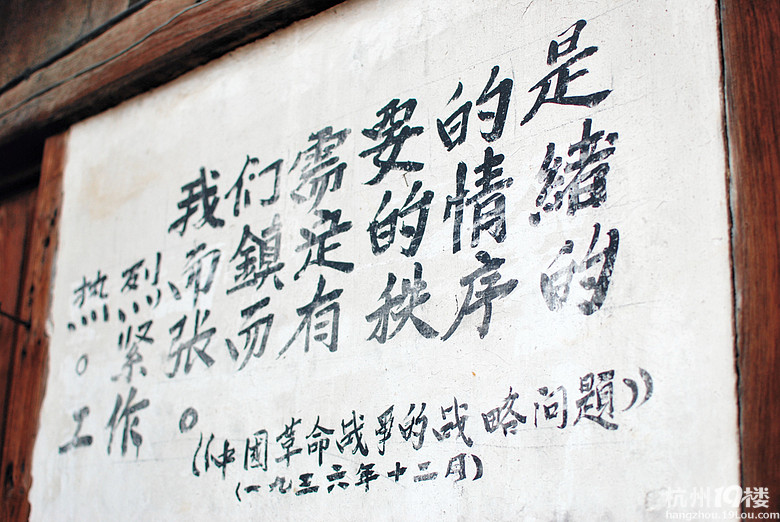 我们需要的是
热烈而鎮定的情緒
。紧张而有秩序的
工作。
(《中國革命战爭的战略问題》)
(一九三六年十二月)
杭州19楼
hangzhou.19lou.com